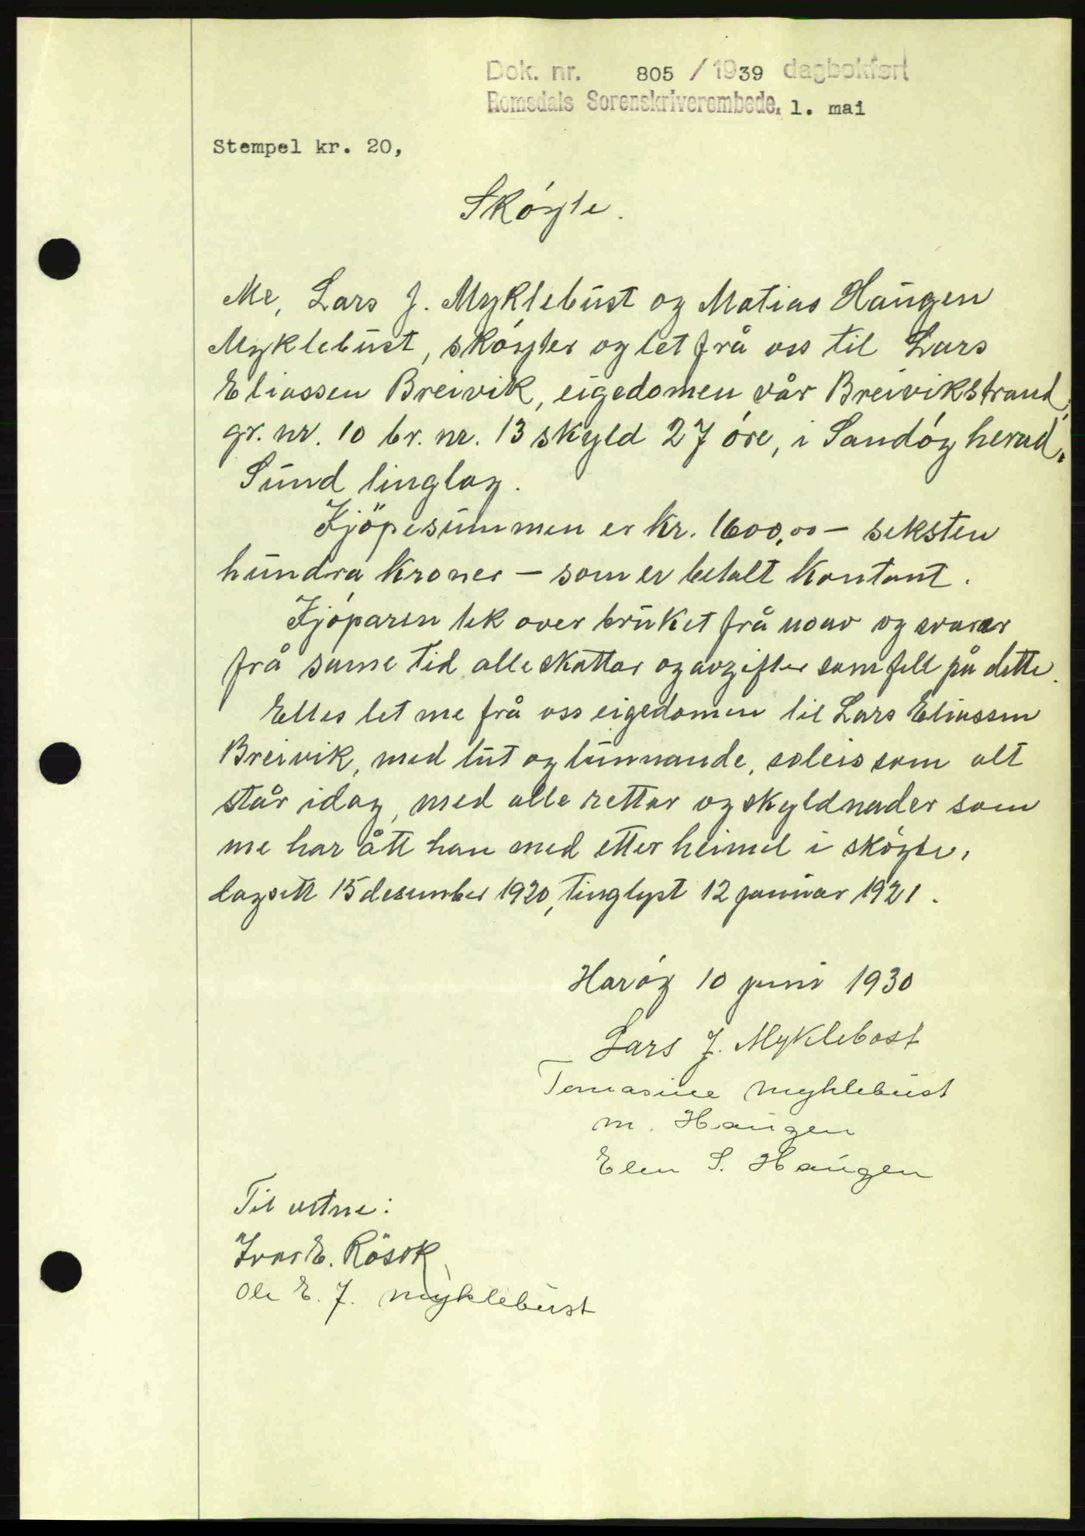 Dok. nr. 805 / 1939 dagbokført
Romsdals Sorenskriverembede, 1. mai
Stempel kr. 20,
Sköyte.
Me, Lars J. Myklebust og Matias Haugen
Myklebust, sköyter og let frå oss til Lars
Eliassen Breivik, eigedomen vår Breivikstrand,
gr. nr. 10 br. nr. 13 skyld 27 öre, i Sandöy herad,
Sund tinglag.
Kjöpesummen er kr. 1600,00 – seksten
hundra kroner – som er betalt kontant.
Kjöparen tek over bruket frå no av og svarar
frå same tid alle skattar og avgifter som fell på dette.
Elles let me frå oss eigedomen til Lars Eliassen
Breivik, med lut og lunnande, soleis som alt
står idag, med alle rettar og skyldnader som
me har ått han med etter heimel i sköyte,
dagsett 15 desember 1920, tinglyst 12 januar 1921.
Haröy 10 juni 1930
Lars J. Myklebost
Tomasine Myklebust
M. Haugen
Elen S. Haugen
Til vitne:
Ivar E. Rösok
Ole E. J. Myklebust